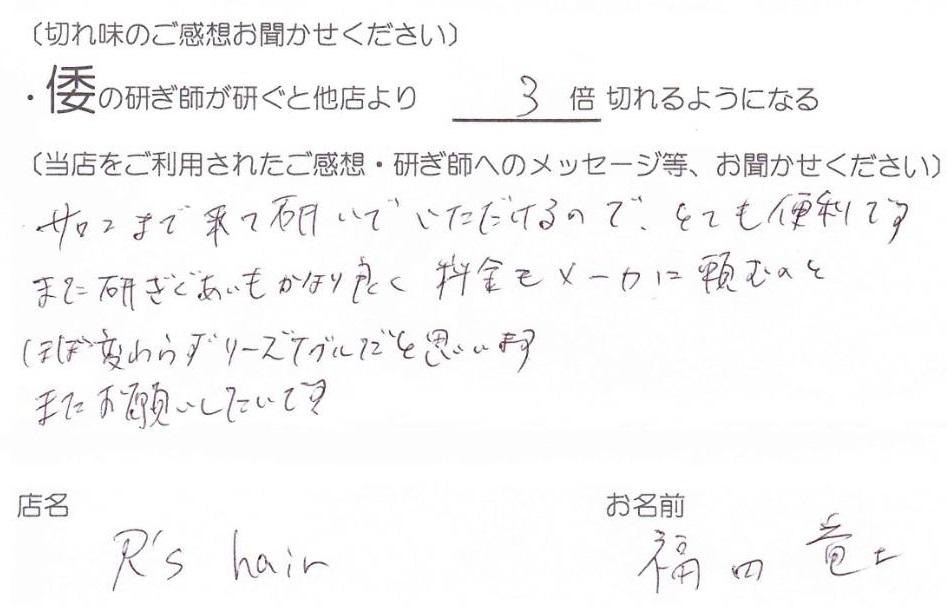 (切れ味のご感想お聞かせください)
・倭の研ぎ師が研ぐと他店より 3 倍 切れるようになる
(当店をご利用されたご感想・研ぎ師へのメッセージ等、お聞かせください)
サロンまで来て研いでいただけるので、とても便利です
また研ぎぐあいもかなり良く 料金もメーカーに頼むのと
ほぼ変わらずリーズナブルだと思います
またお願いしたいです
店名
お名前
R's hair
福田 竜士